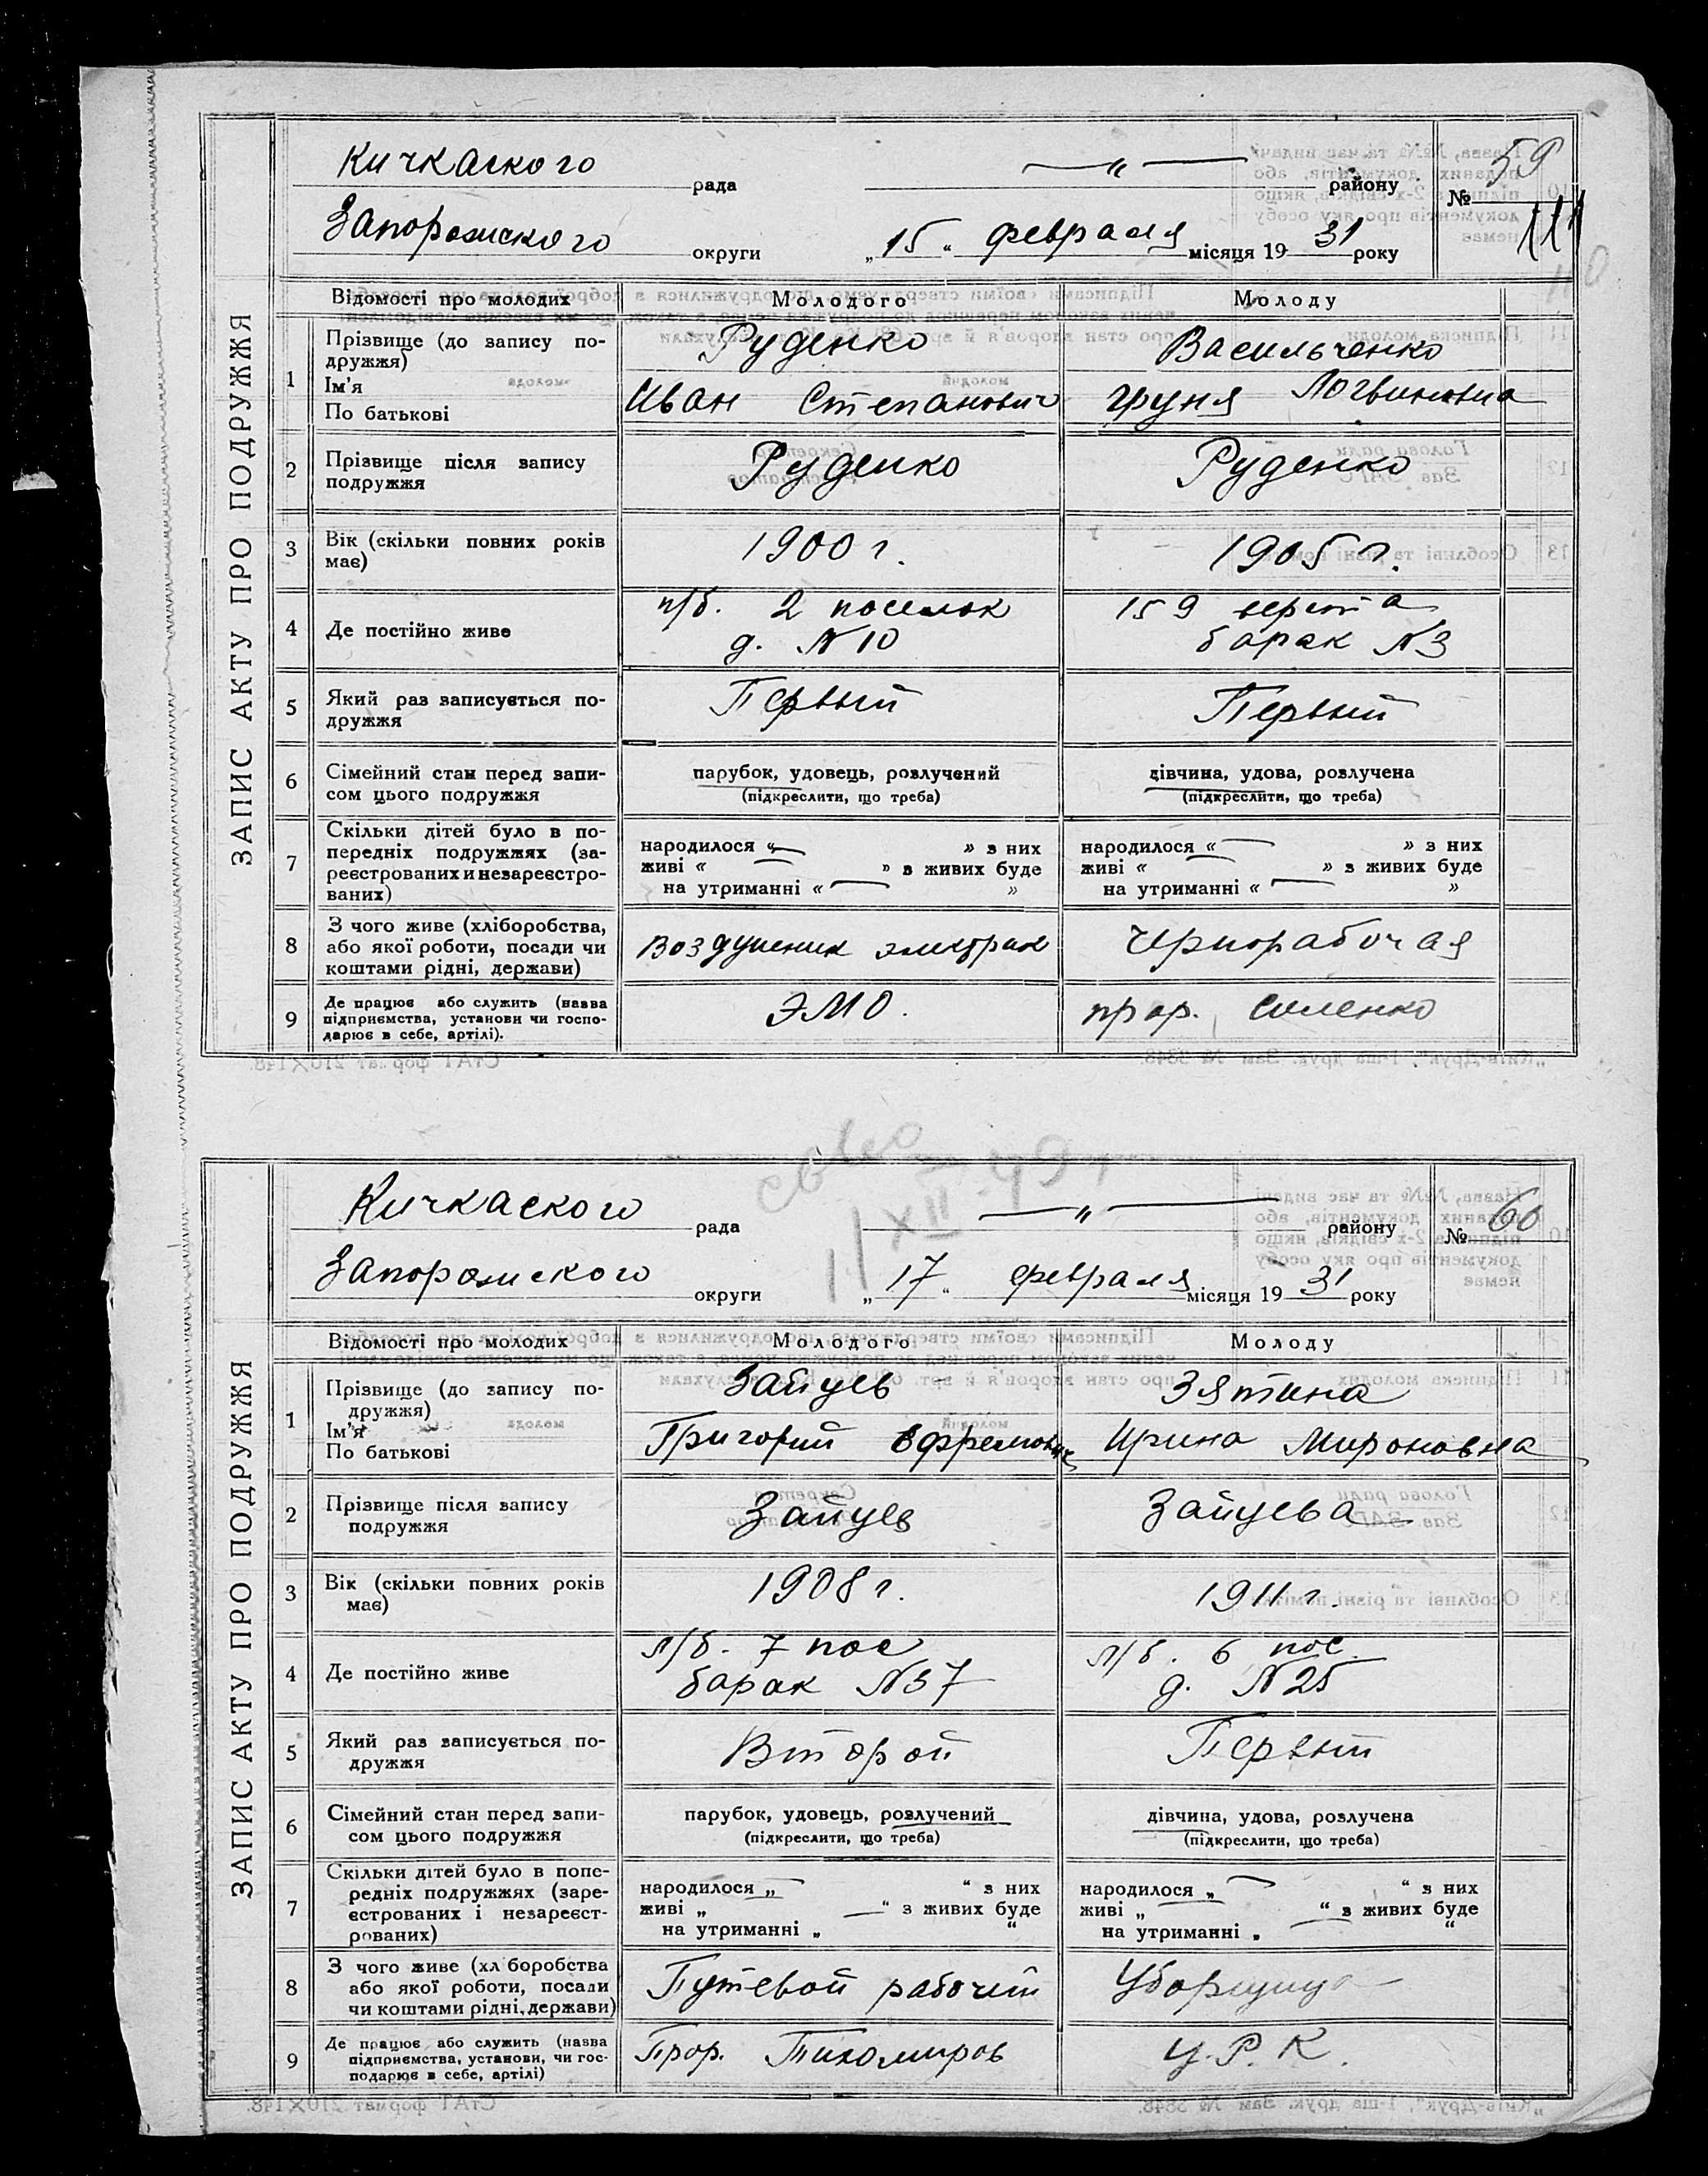 ЗАПИС АКТУ ПРО ПОДРУЖЖЯ
Кичкаского рада —„— району № 59
Запорожского округи „15“ февраля місяця 1931 року
111
Відомості про молодих Молодого Молоду
1 Прізвище (до запису по-
дружжя)
Ім'я
По батькові
Руденко
Иван Степанович
Васильченко
Груня Логвиновна
2 Прізвище після запису
подружжя
Руденко
Руденко
3 Вік (скільки повних років
має)
1900 г.
1905 г.
4 Де постійно живе
п/б. 2 поселок
д. N 10
159 верста
барак N 3
5 Який раз записується по-
дружжя
Первый
Первый
6 Сімейний стан перед запи-
сом цього подружжя
парубок, удовець, розлучений
(підкреслити, що треба)
дівчина, удова, розлучена
(підкреслити, що треба)
7 Скільки дітей було в по-
передніх подружжях (за-
реєстрованих и незареєстро-
ваних)
народилося « — » з них
живі « — » з живих буде
на утриманні « — »
народилося « — » з них
живі « — » з живих буде
на утриманні « — »
8 З чого живе (хліборобства,
або якої роботи, посади чи
коштами рідні, держави)
Чернорабочая
9 Де працює або служить (назва
підприємства, установи чи госпо-
дарює в себе, артілі).
ЭМО.
прор.
„Київ-Друк“, 1-ша друк. Зам № 5848.
СтАТ формат 210×148.
XII 49
ЗАПИС АКТУ ПРО ПОДРУЖЖЯ
Кичкаского рада —„— району № 60
Запорожского округи „17“ февраля місяця 1931 року
Відомості про молодих Молодого Молоду
1 Прізвище (до запису по-
дружжя)
Ім'я
По батькові
Зайцев
Григорий Ефремович
Зятина
Ирина Мироновна
2 Прізвище після запису
подружжя
Зайцев
Зайцева
3 Вік (скільки повних років
має)
1908 г.
1911 г.
4 Де постійно живе
л/б. 7 пос
барак N 37
л/б. 6 пос.
д. N 25
5 Який раз записується по-
дружжя
Второй
Первый
6 Сімейний стан перед запи-
сом цього подружжя
парубок, удовець, розлучений
(підкреслити, що треба)
дівчина, удова, розлучена
(підкреслити, що треба)
7 Скільки дітей було в попе-
редніх подружжях (заре-
єстрованих і незареєст-
рованих)
народилося „ — “ з них
живі „ — “ з живих буде
на утриманні „ “
народилося „ — “ з них
живі „ — “ з живих буде
на утриманні „ “
8 З чого живе (хл боробства
або якої роботи, посади
чи коштами рідні, держави)
Путевой рабочий
Уборщица
9 Де працює або служить (назва
підприємства, установи, чи гос-
подарює в себе, артілі)
Прор. Тихомиров
Ц.Р.К.
„Київ-Друк“, 1-ша друк. Зам № 5848.
СтАТ формат 210×148.